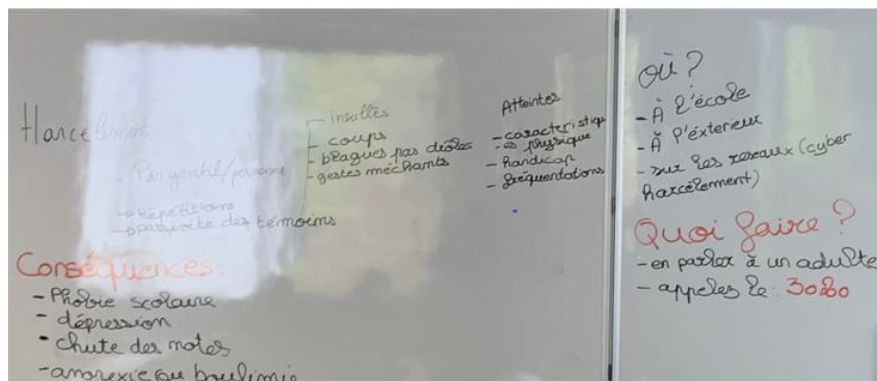 Harcèlement
- Pas gentil/personne
-> Répétitions
-> passivité des témoins
- insultes
- coups
- blagues pas drôles
- gestes méchants
Atteintes
- caracteristiqu
es physique
- handicap
- fréquentations
Conséquences:
- Phobie scolaire
- dépression
- chute des notes
- anorexie ou boulimie
où ?
- À l'école
- À l'éxterieur
- sur les reseaux (cyber
harcèlement)
Quoi faire ?
- en parler à un adulte
- appeler le: 3020